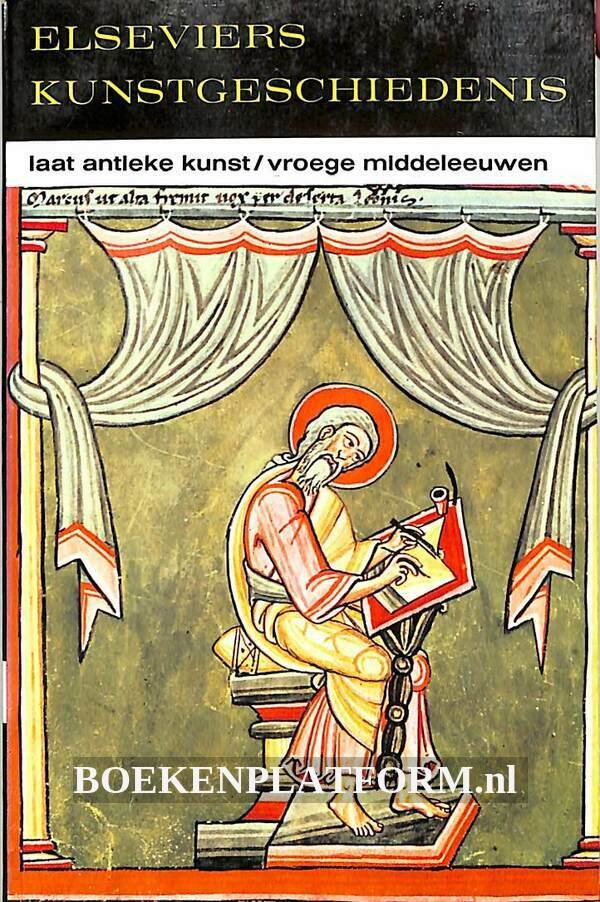 ELSEVIERS
KUNSTGESCHIEDENIS
laat antieke kunst/vroege middeleeuwen
Marcus ut alta fremit vox per deserta leonis.
BOEKENPLATFORM.nl